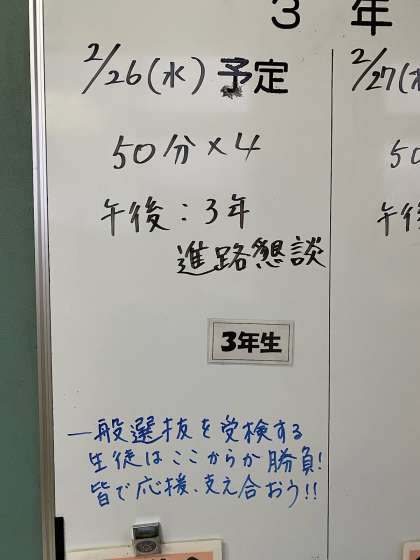 3年
2/26(水)予定
2/27(木
50分×4
50
午後:3年
午後
進路懇談
3年生
一般選抜を受検する
生徒はここからか勝負!
皆で応援、支え合おう!!